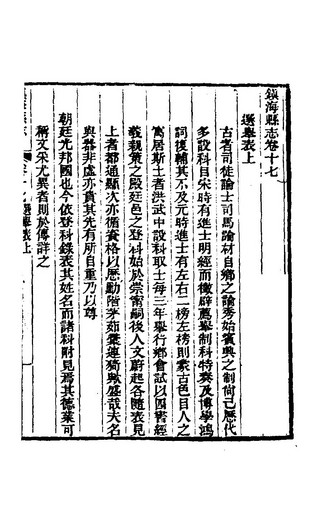 鎮海縣志卷十七
選舉表上
古者司徒論士司馬論材自鄉之論秀始賓興之制尚已歷代
多設科目宋時有進士明經而徵辟薦舉制科特奏及博學鴻
詞後輔其不及元時進士有左右二榜左榜則蒙古色目人之
寓居斯土者洪武中設科取士每三年舉行鄉會試以四書經
義親策之殿廷邑之登科始於崇甯嗣後人文蔚起各隨表見
上者都通顯次亦循資格以歷勳階茅茹彙連猗歟盛哉夫名
與器非虛亦貴其先有所自重乃以尊
朝廷光邦國也今依登科錄表其姓名而諸科附見焉其德業可
稱文采尤異者則於傳詳之
選舉表上